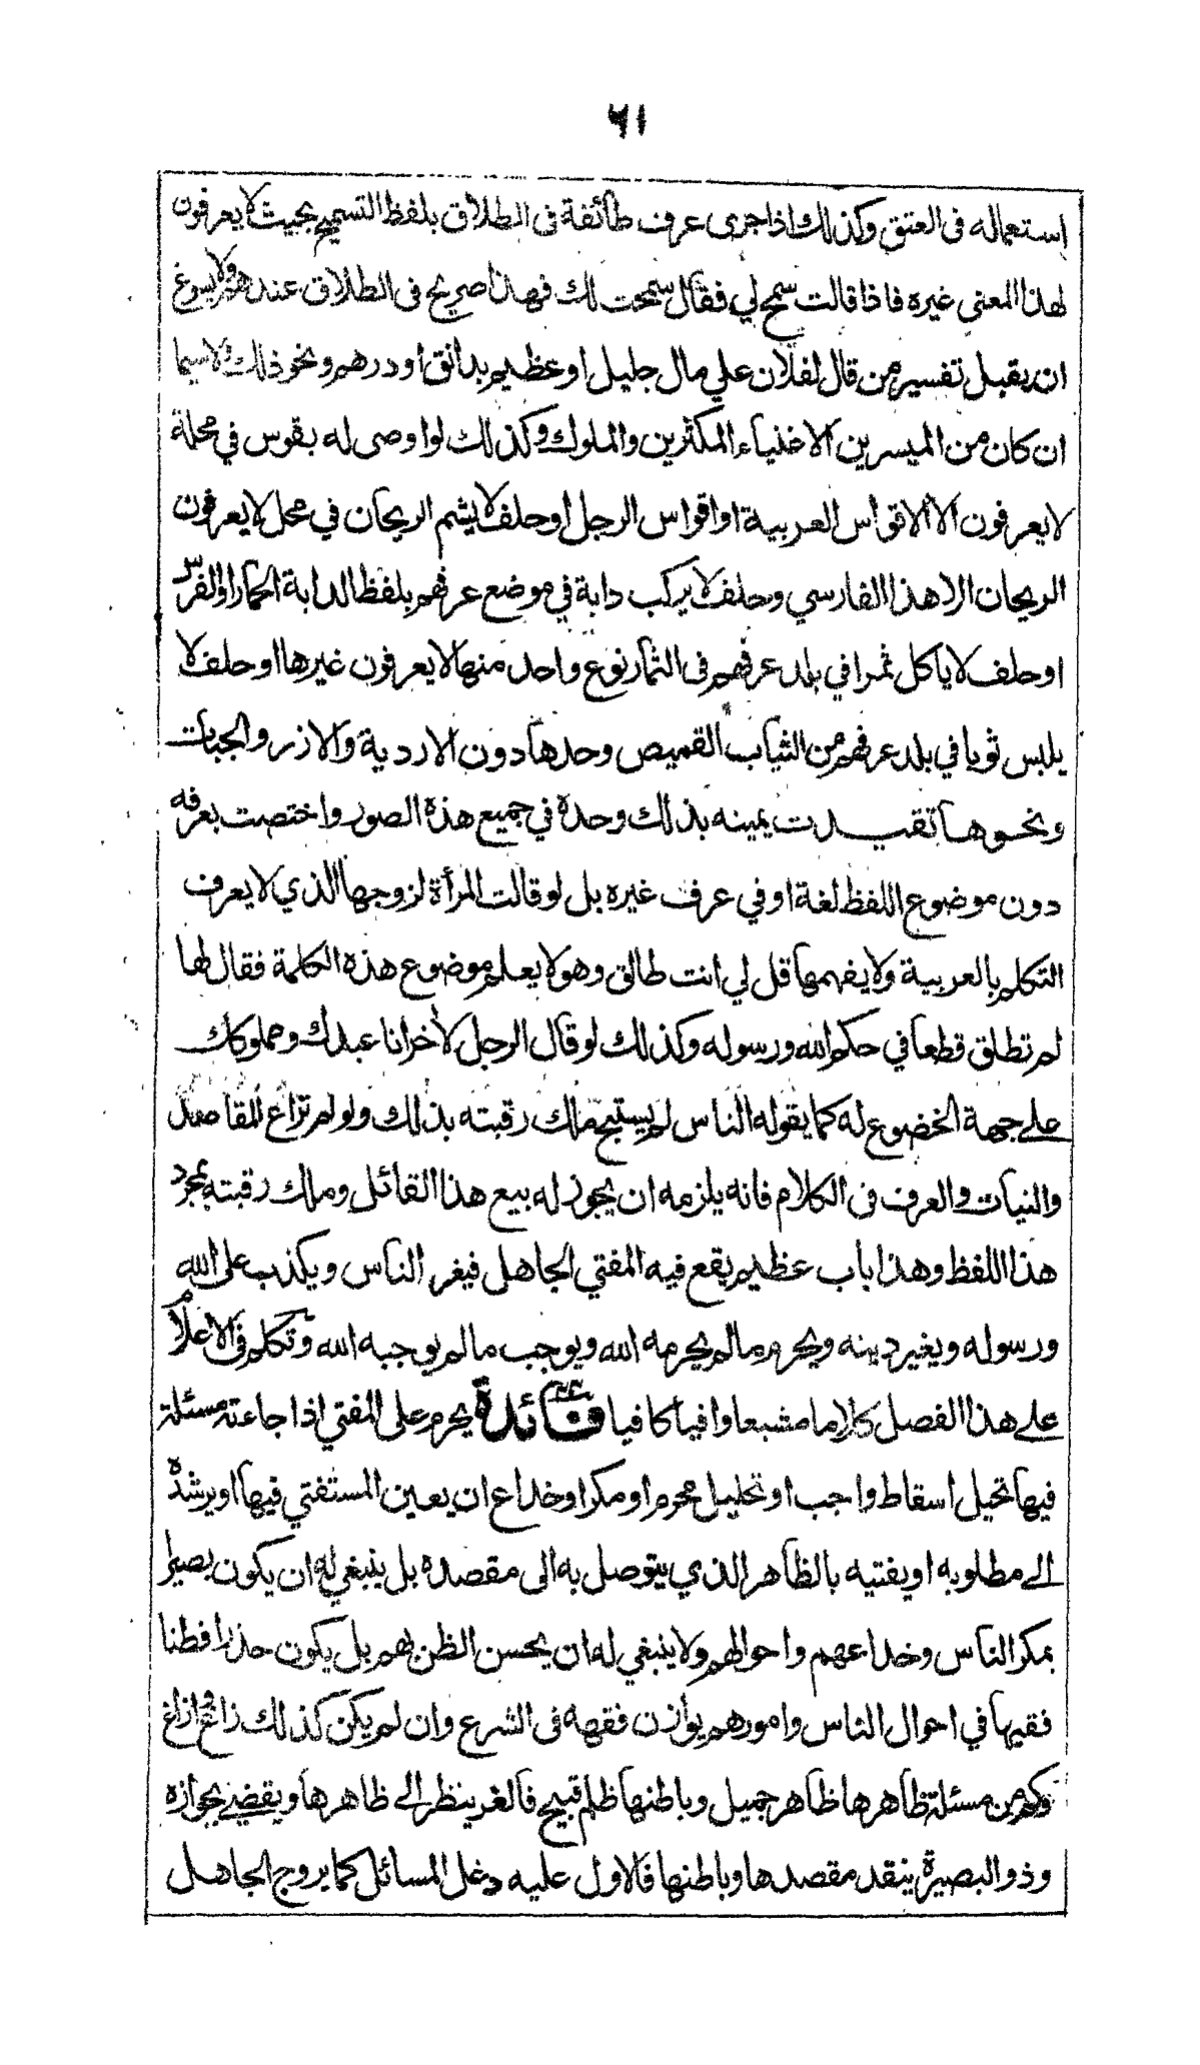 ٦١
استعماله فى العتق وكذلك اذا جرى عرف طائفة فى الطلاق بلفظ التسميح بحيث لا يعرفون
لهذا المعنى غيره فاذا قالت سمح لي فقال سمحت لك فهذا صريح فى الطلاق عندهم ولا يسوغ
ان يقبل تفسير من قال لفلان علي مال جليل او عظيم بدانق او درهم ونحو ذلك ولا سيما
ان كان من الميسرين الاغنياء المكثرين والملوك وكذلك لو اوصى له بقوس في محلة
لا يعرفون الا الاقواس العربية او اقواس الرجل او حلف لا يشم الريحان في محل لا يعرفون
الريحان الا هذا الفارسي وحلف لا يركب دابة في موضع عرفهم بلفظ الدابة الحمار او الفرس
او حلف لا ياكل ثمرا في بلد عرفهم فى الثمار نوع واحد منها لا يعرفون غيرها او حلف لا
يلبس ثوبا في بلد عرفهم من الثياب القميص وحدها دون الاردية والازر والجباب
ونحوها تقيدت يمينه بذلك وحدة في جميع هذة الصور واختصت بعرفه
دون موضوع اللفظ لغة او في عرف غيره بل لو قالت المرأة لزوجها الذي لا يعرف
التكلم بالعربية ولا يفهمها قل لي انت طالق وهو لا يعلم موضوع هذه الكلمة فقال لها
لم تطلق قطعا في حكم الله ورسوله وكذلك لو قال الرجل لأخر انا عبدك ومملوكك
على جهة الخضوع له كما يقوله الناس لم يستبح ملك رقبته بذلك ولو لم تراع المقاصد
والنيات والعرف فى الكلام فانه يلزمه ان يجوز له بيع هذا القائل وملك رقبته بمجرد
هذا اللفظ وهذا باب عظيم يقع فيه المفتي الجاهل فيغر الناس ويكذب على الله
ورسوله ويغير دينه ويحرم مالم يحرمه الله ويوجب مالم يوجبه الله وتكلم فى الاعلام
على هذا الفصل كلاما مشبعا وافيا كافيا فائدة يحرم على المفتي اذا جاءته مسئلة
فيها تحيل اسقاط واجب او تحليل محرم او مكر او خداع ان يعين المستفتي فيها او يرشده
الى مطلوبه او يفتيه بالظاهر الذي يتوصل به الى مقصده بل ينبغي له ان يكون بصيرا
بمكر الناس وخداعهم واحوالهم ولا ينبغي له ان يحسن الظن بهم بل يكون حذرا فطنا
فقيها في احوال الناس وامورهم يوازن فقهه فى الشرع وان لم يكن كذلك زاغ وازاغ
وكم من مسئلة ظاهرها ظاهر جميل وباطنها ظلم قبيح فالغر ينظر الى ظاهرها ويقضي بجوازه
وذو البصيرة ينقد مقصدها وباطنها فالاول عليه دغل المسائل كما يروج الجاهل